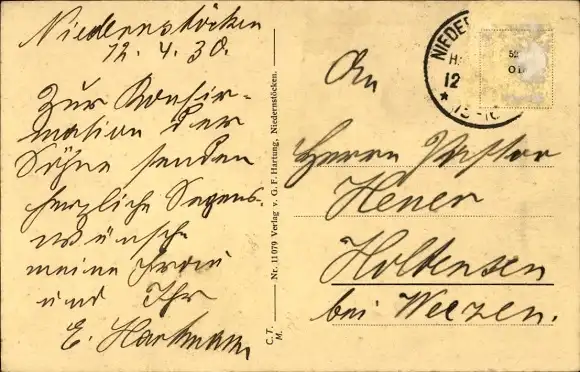 Niedernstöcken
12. 4. 30.
Zur Konfir-
mation der
Söhne senden
herzliche Segens-
wünsche
meine Frau
und Ihr
E. Hartmann
C. T.
M.
Nr. 11 079 Verlag v. G. F. Hartung, Niedernstöcken.
NIEDER
12
An
Herrn Pastor
Hener
Holtensen
bei Weezen.